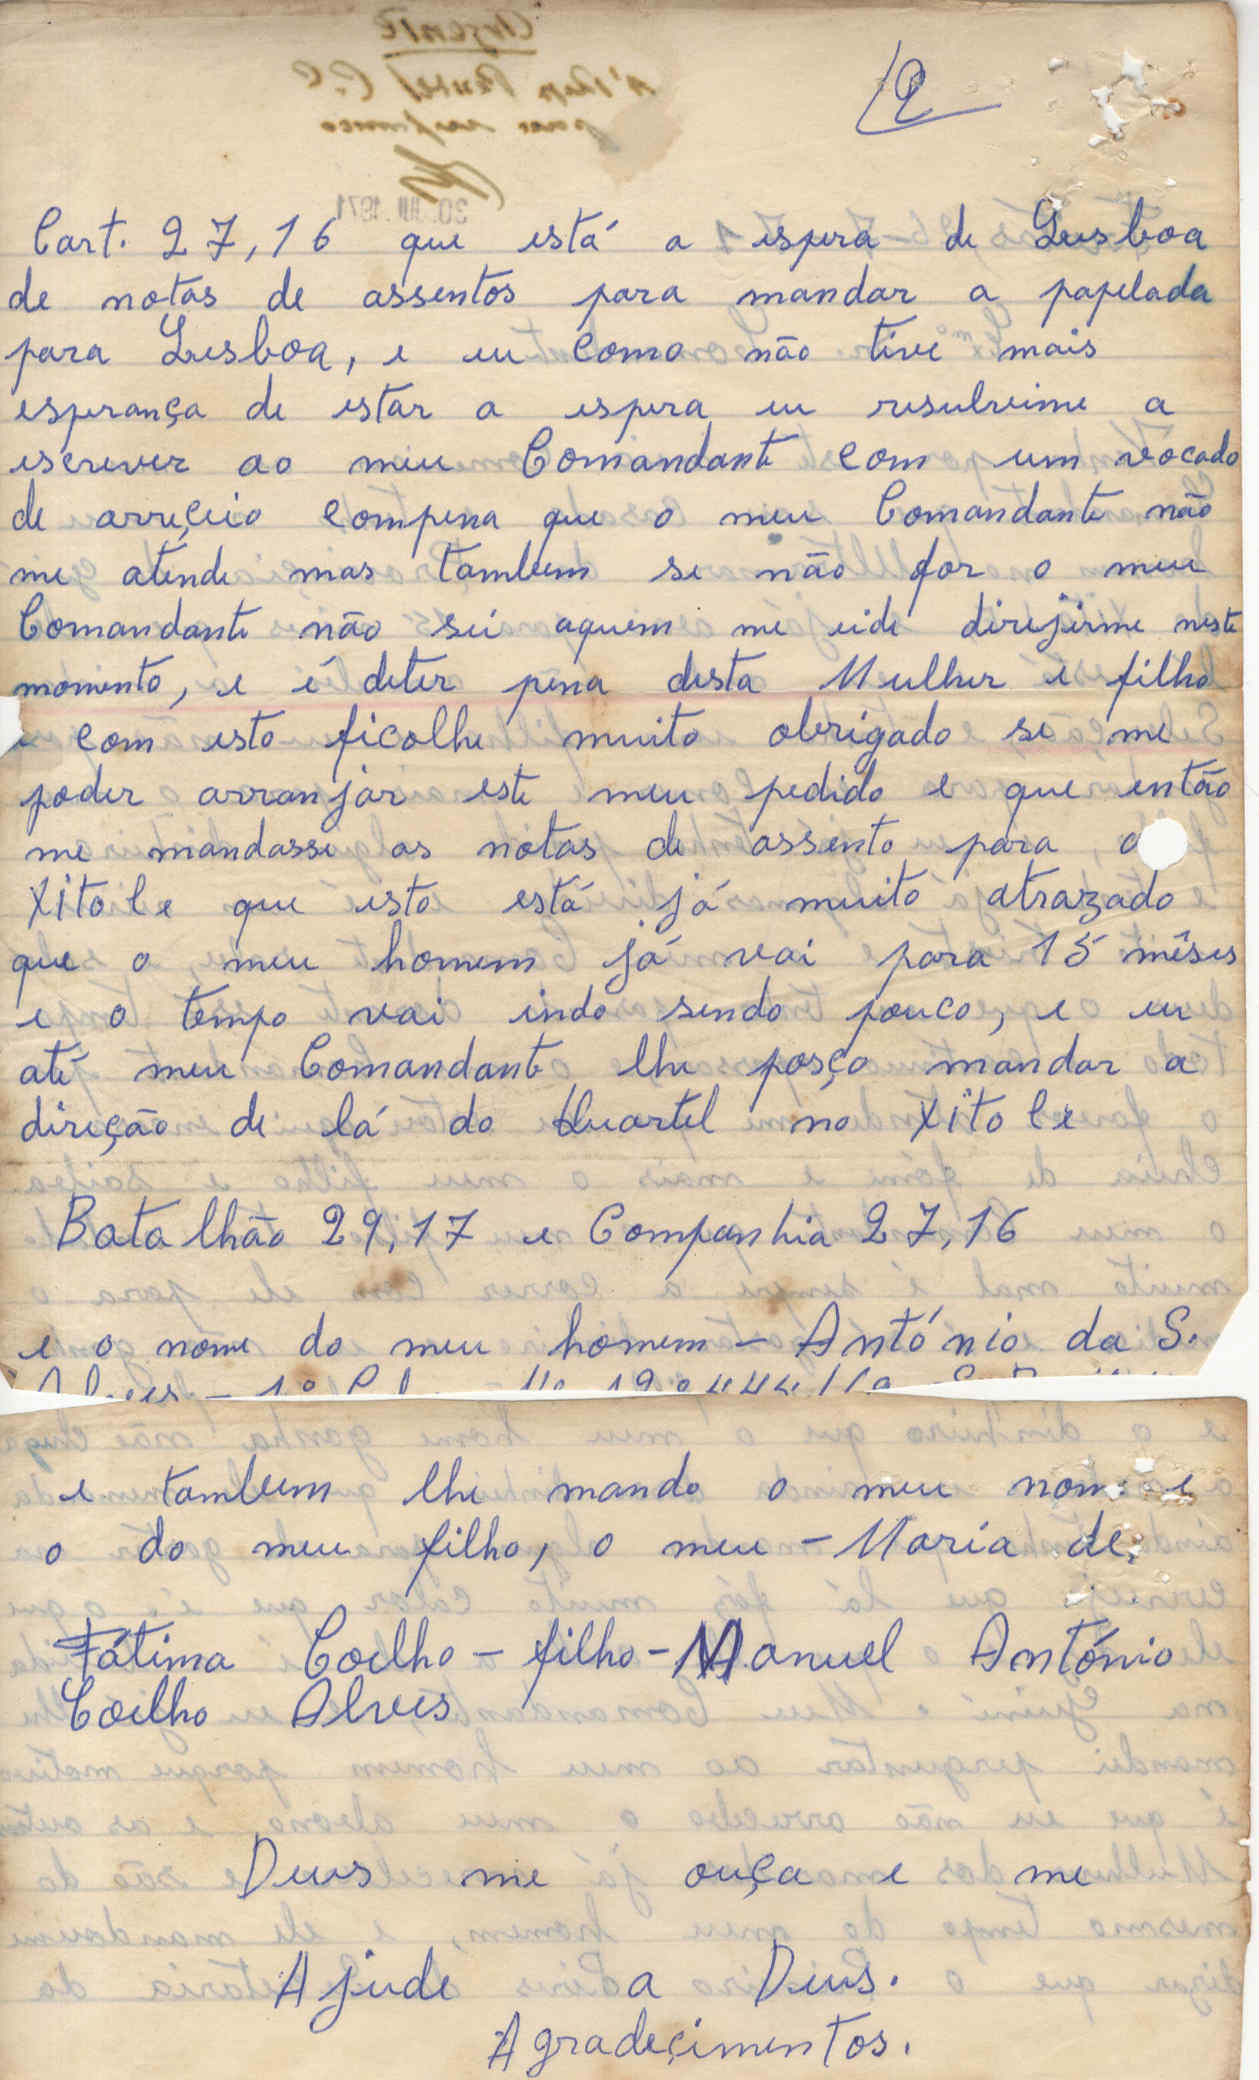 2
Cart. 27,16 que está a espera de Lusboa
de notas de assentos para mandar a papelada
para Lusboa, e eu como não tive mais
esperança de estar a espera eu resulveime a
escrever ao meu Comandante com um vocado
de arreçeio compena que o meu Comandante não
me atende mas tambem se não for o meu
Comandante não sei aquem me eide dirijirme neste
momento, e é deter pena desta Mulher e filho
e com isto ficolhe muito obrigado se me
poder arranjar este meu pedido e que então
me mandasse as notas de assento para o
Xitole que isto está já muito atrazado
que o meu homem já vai para 15 mêses
e o tempo vai indo sendo pouco, e eu
até meu Comandante lhe posço mandar a
direção de lá do Quartel no Xitole
Batalhão 29,17 e Companhia 27,16
e o nome do meu homem - António da S.
e tambem lhe mando o meu nome e
o do meu filho, o meu - Maria de
Fátima Coelho - filho - Manuel António
Coelho Alves
Deus me ouça e me
Ajude a Deus.
Agradeçimentos.